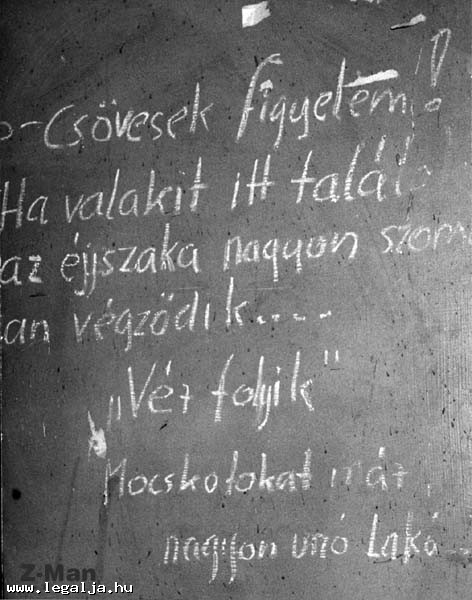 -Csövesek figyelem!
Ha valakit itt talál
az éjjszaka nagyon szom
an végződik....
„Vér folyik"
Mocskotokat már
nagyon unó Laká
Z-Man
www.legalja.hu